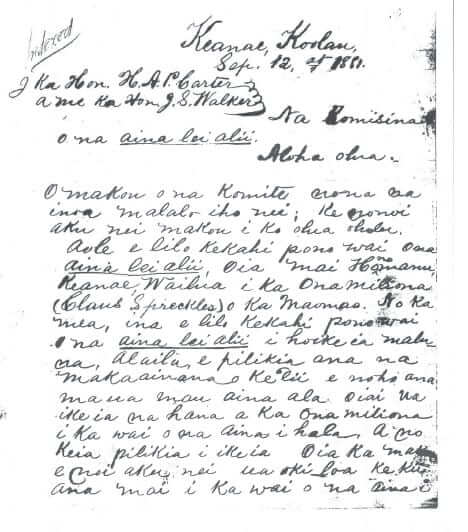 Indexed
Keanae, Koolau,
Sep. 12, 1881.
I Ka Hon. H. A. P. Carter
a me ka Hon. J. S. Walker
Na Komisina
o na aina lei alii.
Aloha olua.
O makou o na Komite nona na
inoa malalo iho nei; Ke nonoi
aku nei makou i ko olua oluolu.
Aole e lilo kekahi pono wai o na
aina lei alii, Oia mai Honomanu,
Keanae, Wailua i ka Ona miliona
(Claus Spreckles) o Ka Maomao. No ka
mea, ina e lilo kekahi pono wai
o na aina lei alii i hoike ia malu
na, Alaila, e pilikia ana na
makaainana o Ke Lii e noho ana
ma ua mau aina ala Oiai ua
ike ia na hana a ka Ona miliona
i Ka wai o na aina i hala. A no
Keia pilikia i ike ia Oia Ka makou
e noi aku nei ua oki loa ke kuu
ana mai i Ka wai o na aina i